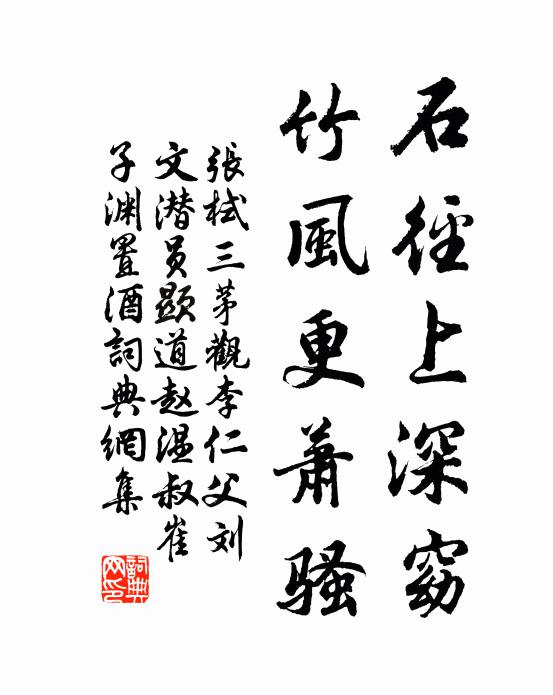 石徑上深窈
竹風更蕭騷
張栻三茅觀李仁父刘
文潜员顯道赵温叔崔
子渊置酒詞典網集
詞典网印